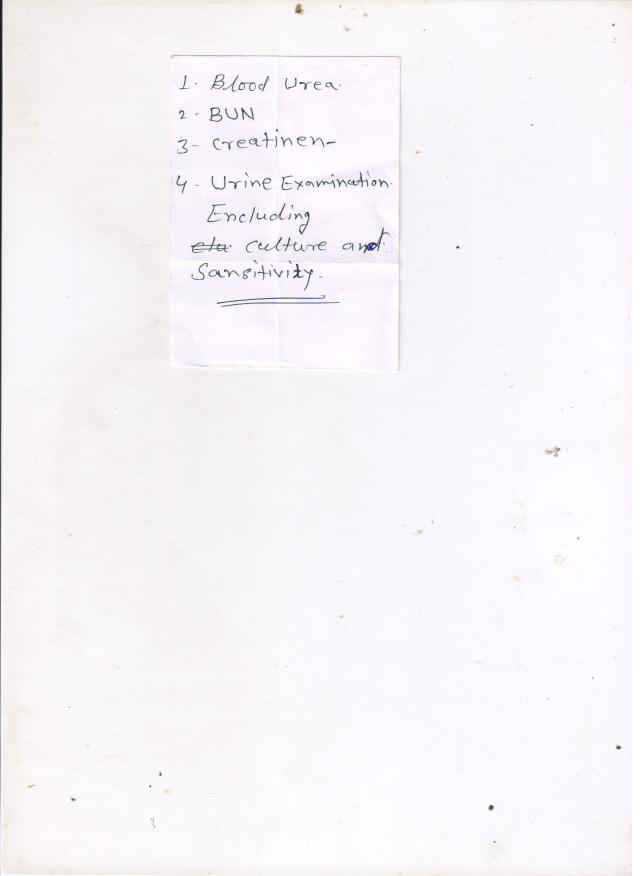 1. Blood Urea.
2. BUN
3- Creatinen-
4- Urine Examination.
Encluding
culture and
Sansitivity.